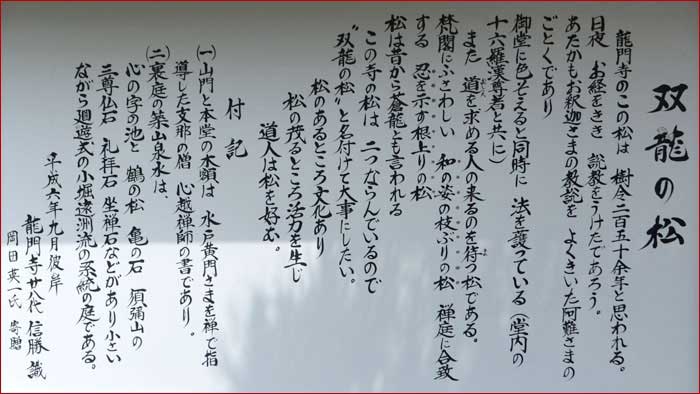 双龍の松
龍門寺のこの松は 樹令二百五十余年と思われる。
日夜 お経をきき 説教をうけたであろう。
あたかもお釈迦さまの教説を よくきいた阿難さまの
ごとくであり
御堂に色をそえると同時に 法を護っている(堂内の
十六羅漢尊者と共に)
また 道を求める人の来るのを待つ松である。
梵閣にふさわしい 和の姿の枝ぶりの松 禅庭に合致
する 忍を示す根上りの松
松は昔から蒼龍とも言われる
この寺の松は 二つならんでいるので
“双龍の松”と名付けて大事にしたい。
松のあるところ文化あり
松の茂るところ活力を生じ
道人は松を好む。
付記
(一)山門と本堂の木額は 水戸黄門さまを禅で指
導した支那の僧 心越禅師の書であり。
(二)裏庭の築山泉水は
心の字の池と 鶴の松 亀の石 須弥山の
三尊仏石 礼拝石 坐禅石などがあり小さい
ながら廻遊式の小堀遠洲流の系統の庭である。
平成六年九月彼岸
龍門寺廿八代 信勝 識
岡田英一氏 寄贈